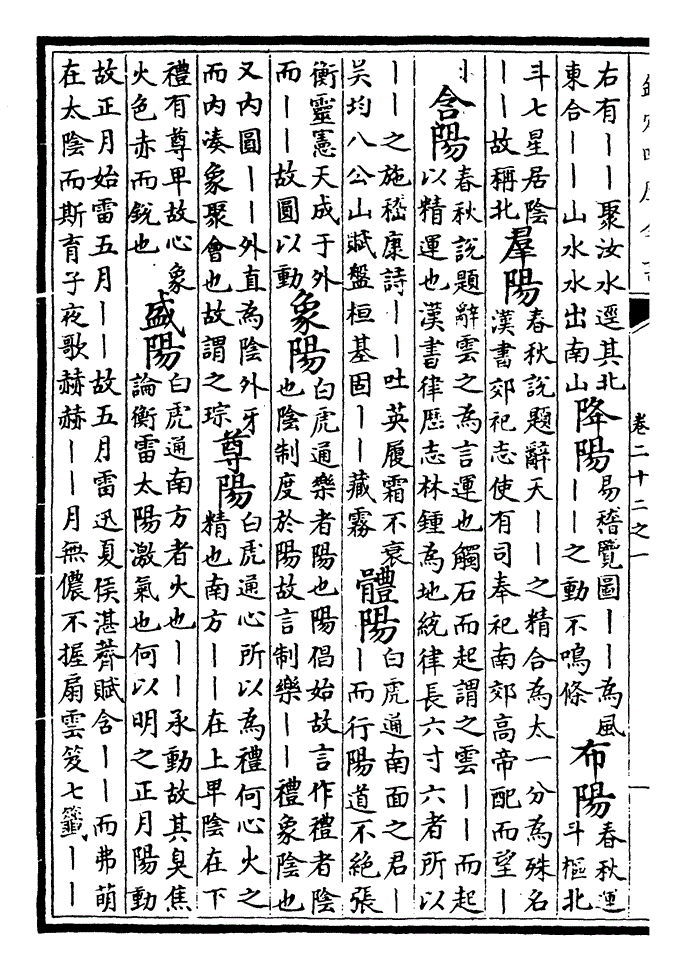 卷二十二之一
一
右有丨丨聚汝水逕其北
東合丨丨山水水出南山
降陽
易稽覽圖丨丨為風
丨丨之動不鳴條
布陽
春秋運
斗樞北
斗七星居陰
丨丨故稱北
羣陽
春秋説題辭天丨丨之精合為太一分為殊名
漢書郊祀志使有司奉祀南郊高帝配而望丨
丨
含陽
春秋説題辭雲之為言運也觸石而起謂之雲丨丨而起
以精運也漢書律歷志林鍾為地統律長六寸六者所以
丨丨之施嵇康詩丨丨吐英履霜不衰
吴均八公山賦盤桓基固丨丨藏霧
體陽
白虎通南面之君丨
丨而行陽道不絶張
衡靈憲天成于外
而丨丨故圓以動
象陽
白虎通樂者陽也陽倡始故言作禮者陰
也陰制度於陽故言制樂丨丨禮象陰也
又内圓丨丨外直為陰外牙
而内湊象聚會也故謂之琮
尊陽
白虎通心所以為禮何心火之
精也南方丨丨在上卑陰在下
禮有尊卑故心象
火色赤而鋭也
盛陽
白虎通南方者火也丨丨承動故其臭焦
論衡雷太陽激氣也何以明之正月陽動
故正月始雷五月丨丨故五月雷迅夏侯湛薺賦含丨丨而弗萌
在太陰而斯育子夜歌赫赫丨丨月無儂不握扇雲笈七籤丨丨